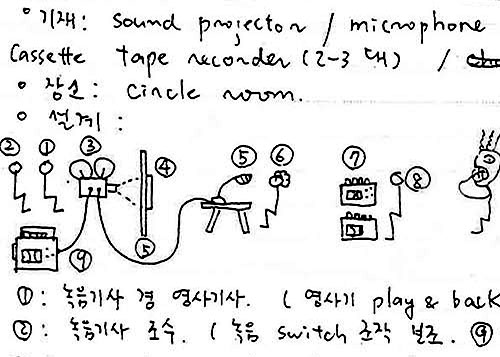 ◦ 기재: sound projector / microphone
Cassette tape recorder (2-3 대) /
◦ 장소: circle room.
◦ 설계:
② ① ③ ④ ⑤ ⑥ ⑦ ⑧
⑨ ⑤
①: 녹음기사 겸 영사기사. ( 영사기 play & back
②: 녹음기사 조수. ( 녹음 switch 조작 보조. ⑨